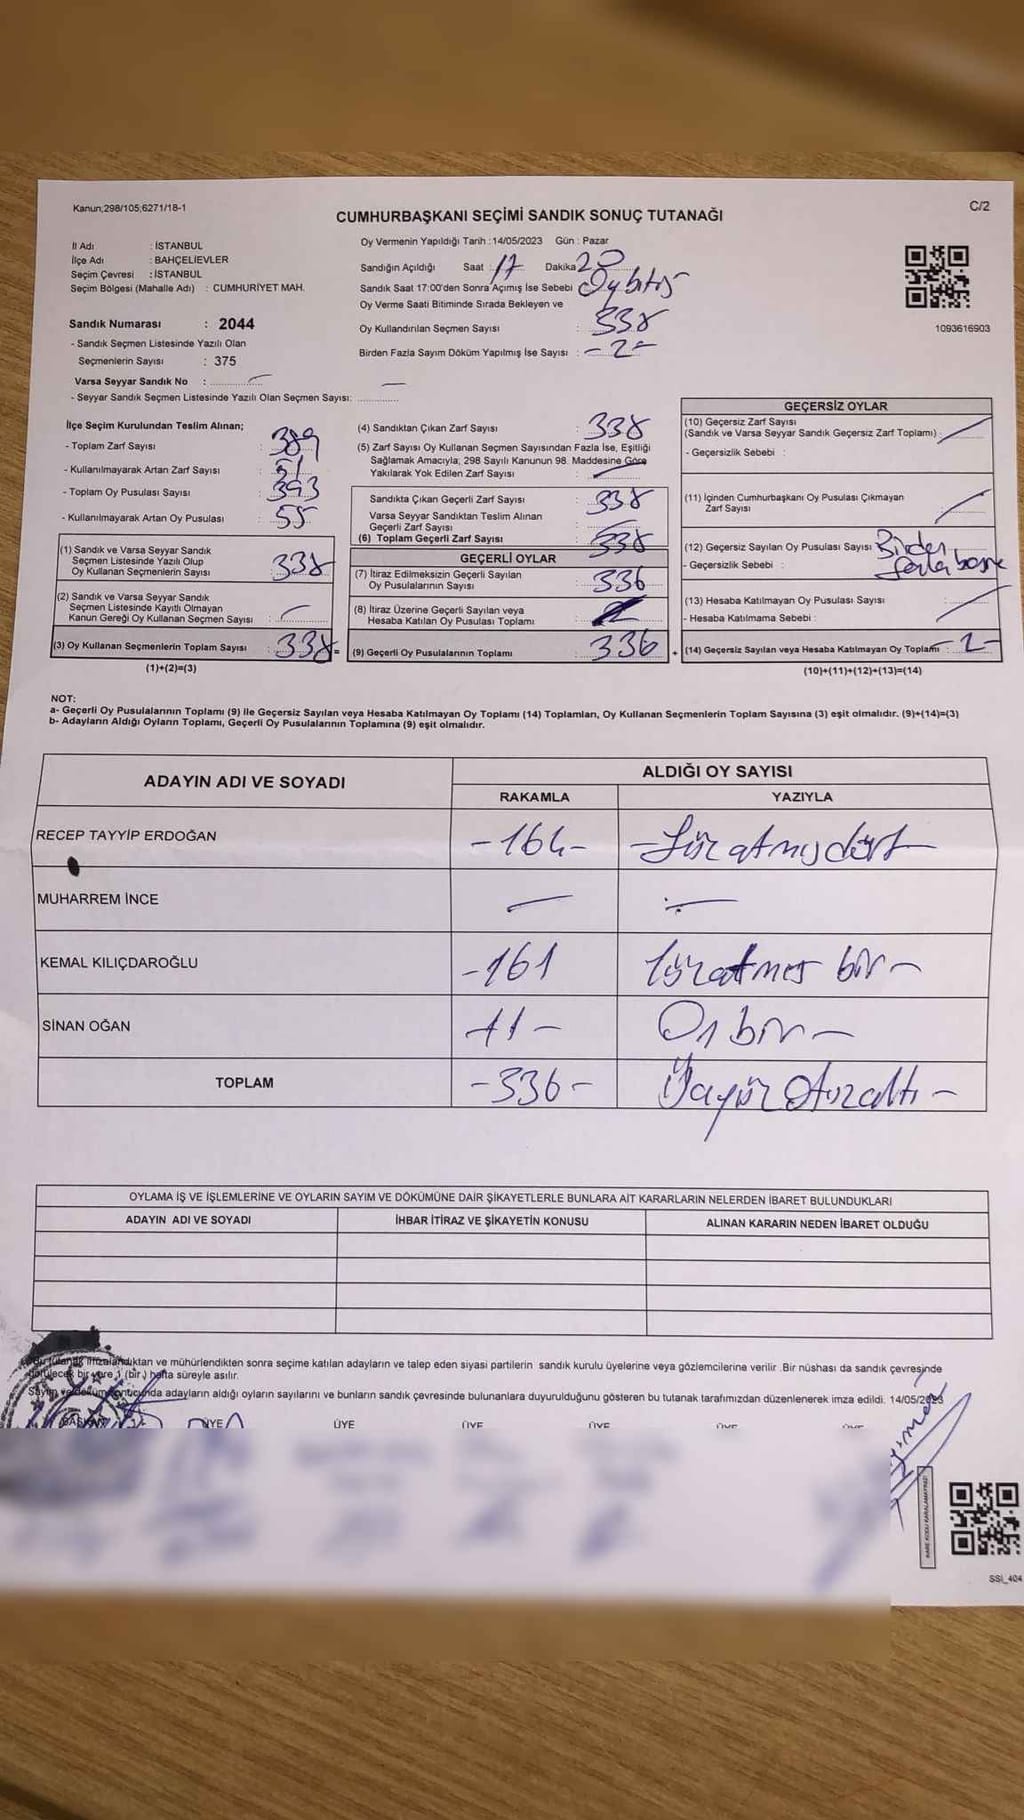 Kanun;298/105;6271/18-1
C/2
CUMHURBAŞKANI SEÇİMİ SANDIK SONUÇ TUTANAĞI
İl Adı : İSTANBUL
İlçe Adı : BAHÇELİEVLER
Seçim Çevresi : İSTANBUL
Seçim Bölgesi (Mahalle Adı) : CUMHURİYET MAH.
Sandık Numarası : 2044
- Sandık Seçmen Listesinde Yazılı Olan
Seçmenlerin Sayısı : 375
Varsa Seyyar Sandık No :
- Seyyar Sandık Seçmen Listesinde Yazılı Olan Seçmen Sayısı:
Oy Vermenin Yapıldığı Tarih :14/05/2023 Gün : Pazar
Sandığın Açıldığı Saat : 17 Dakika 20
Sandık Saat 17:00'den Sonra Açımış İse Sebebi Oy bitiş
Oy Verme Saati Bitiminde Sırada Bekleyen ve
Oy Kullandırılan Seçmen Sayısı : 338
Birden Fazla Sayım Döküm Yapılmış İse Sayısı : -2-
1093616903
İlçe Seçim Kurulundan Teslim Alınan;
- Toplam Zarf Sayısı : 389
- Kullanılmayarak Artan Zarf Sayısı : 51
- Toplam Oy Pusulası Sayısı : 393
- Kullanılmayarak Artan Oy Pusulası : 55
(1) Sandık ve Varsa Seyyar Sandık
Seçmen Listesinde Yazılı Olup
Oy Kullanan Seçmenlerin Sayısı : 338
(2) Sandık ve Varsa Seyyar Sandık
Seçmen Listesinde Kayıtlı Olmayan
Kanun Gereği Oy Kullanan Seçmen Sayısı :
(3) Oy Kullanan Seçmenlerin Toplam Sayısı : 338 =
(1)+(2)=(3)
(4) Sandıktan Çıkan Zarf Sayısı : 338
(5) Zarf Sayısı Oy Kullanan Seçmen Sayısından Fazla İse, Eşitliği
Sağlamak Amacıyla; 298 Sayılı Kanunun 98. Maddesine Göre
Yakılarak Yok Edilen Zarf Sayısı :
Sandıkta Çıkan Geçerli Zarf Sayısı : 338
Varsa Seyyar Sandıktan Teslim Alınan
Geçerli Zarf Sayısı :
(6) Toplam Geçerli Zarf Sayısı : 338
GEÇERLİ OYLAR
(7) İtiraz Edilmeksizin Geçerli Sayılan
Oy Pusulalarının Sayısı : 336
(8) İtiraz Üzerine Geçerli Sayılan veya
Hesaba Katılan Oy Pusulası Toplamı :
(9) Geçerli Oy Pusulalarının Toplamı : 336 +
GEÇERSİZ OYLAR
(10) Geçersiz Zarf Sayısı
(Sandık ve Varsa Seyyar Sandık Geçersiz Zarf Toplamı) :
- Geçersizlik Sebebi :
(11) İçinden Cumhurbaşkanı Oy Pusulası Çıkmayan
Zarf Sayısı :
(12) Geçersiz Sayılan Oy Pusulası Sayısı : Birden
- Geçersizlik Sebebi : fazla basma
(13) Hesaba Katılmayan Oy Pusulası Sayısı :
- Hesaba Katılmama Sebebi :
(14) Geçersiz Sayılan veya Hesaba Katılmayan Oy Toplamı : -2-
(10)+(11)+(12)+(13)=(14)
NOT:
a- Geçerli Oy Pusulalarının Toplamı (9) ile Geçersiz Sayılan veya Hesaba Katılmayan Oy Toplamı (14) Toplamları, Oy Kullanan Seçmenlerin Toplam Sayısına (3) eşit olmalıdır. (9)+(14)=(3)
b- Adayların Aldığı Oyların Toplamı, Geçerli Oy Pusulalarının Toplamına (9) eşit olmalıdır.
ADAYIN ADI VE SOYADI
ALDIĞI OY SAYISI
RAKAMLA YAZIYLA
RECEP TAYYİP ERDOĞAN -164- -Yüz atmış dört-
MUHARREM İNCE - -
KEMAL KILIÇDAROĞLU -161 Yüzatmış bir-
SİNAN OĞAN -11- On bir-
TOPLAM -336- Üçyüz Otuzaltı-
OYLAMA İŞ VE İŞLEMLERİNE VE OYLARIN SAYIM VE DÖKÜMÜNE DAİR ŞİKAYETLERLE BUNLARA AİT KARARLARIN NELERDEN İBARET BULUNDUKLARI
ADAYIN ADI VE SOYADI İHBAR İTİRAZ VE ŞİKAYETİN KONUSU ALINAN KARARIN NEDEN İBARET OLDUĞU
Bu tutanak imzalandıktan ve mühürlendikten sonra seçime katılan adayların ve talep eden siyasi partilerin sandık kurulu üyelerine veya gözlemcilerine verilir .Bir nüshası da sandık çevresinde
görülecek bir yere 1 (bir.) hafta süreyle asılır.
Sayım ve döküm sonucunda adayların aldığı oyların sayılarını ve bunların sandık çevresinde bulunanlara duyurulduğunu gösteren bu tutanak tarafımızdan düzenlenerek imza edildi. 14/05/2023
BAŞKAN ÜYE ÜYE ÜYE ÜYE ÜYE ÜYE
KARE KODU KARALAMAYINIZ!
SSİ_404